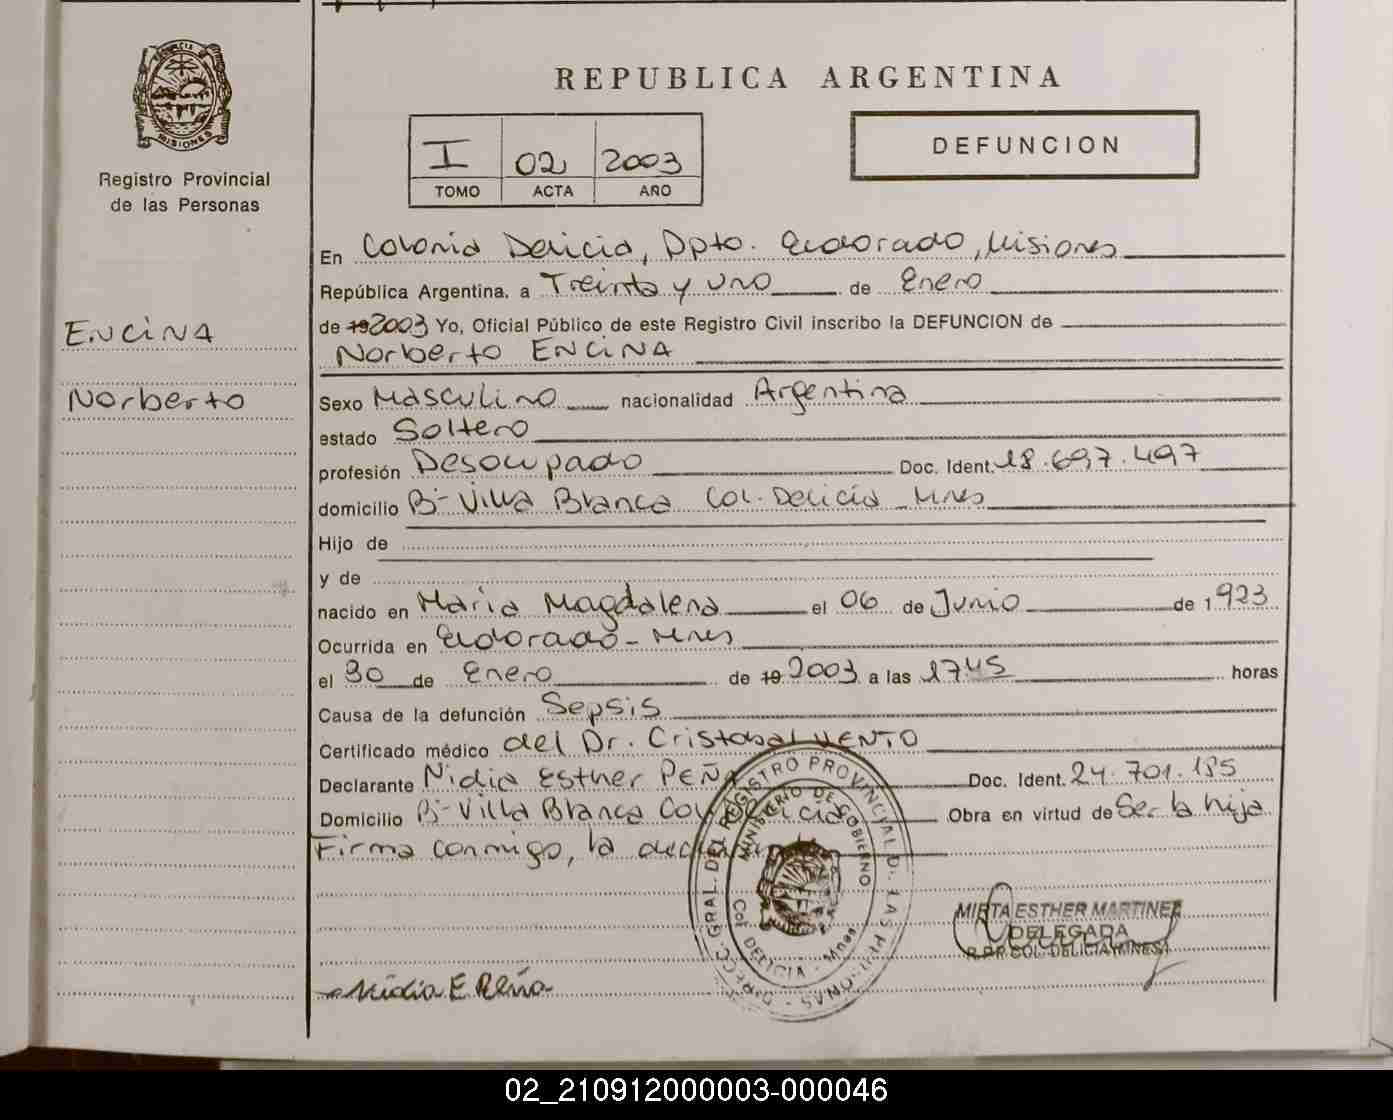 PROVINCIA DE
MISIONES
Registro Provincial
de las Personas
ENCINA
Norberto
REPUBLICA ARGENTINA
I 02 2003
TOMO ACTA AÑO
DEFUNCION
En Colonia Delicia, Dpto. Eldorado, Misiones
República Argentina, a Treinta y uno de Enero
de 19 2003 Yo, Oficial Público de este Registro Civil inscribo la DEFUNCION de
Norberto ENCINA
Sexo Masculino nacionalidad Argentina
estado Soltero
profesión Desocupado Doc. Ident. 18.697.497
domicilio Bº Villa Blanca Col. Delicia Mnes
Hijo de
y de
nacido en Maria Magdalena el 06 de Junio de 1.923
Ocurrida en Eldorado - Mnes
el 30 de Enero de 19 2003 a las 1745 horas
Causa de la defunción Sepsis
Certificado médico del Dr. Cristobal VENTO
Declarante Nidia Esther PEÑA Doc. Ident. 24.701.185
Domicilio Bº Villa Blanca Col Delicia Obra en virtud de Ser la hija
Firma conmigo, la
GRAL. DEL REGISTRO PROVINCIAL DE LAS PERSONAS
MINISTERIO DE GOBIERNO
Col. DELICIA - Mnes.
MIRTA ESTHER MARTINEZ
DELEGADA
R.P.P. COL. DELICIA (MNES)
Nidia E Peña
02_210912000003-000046